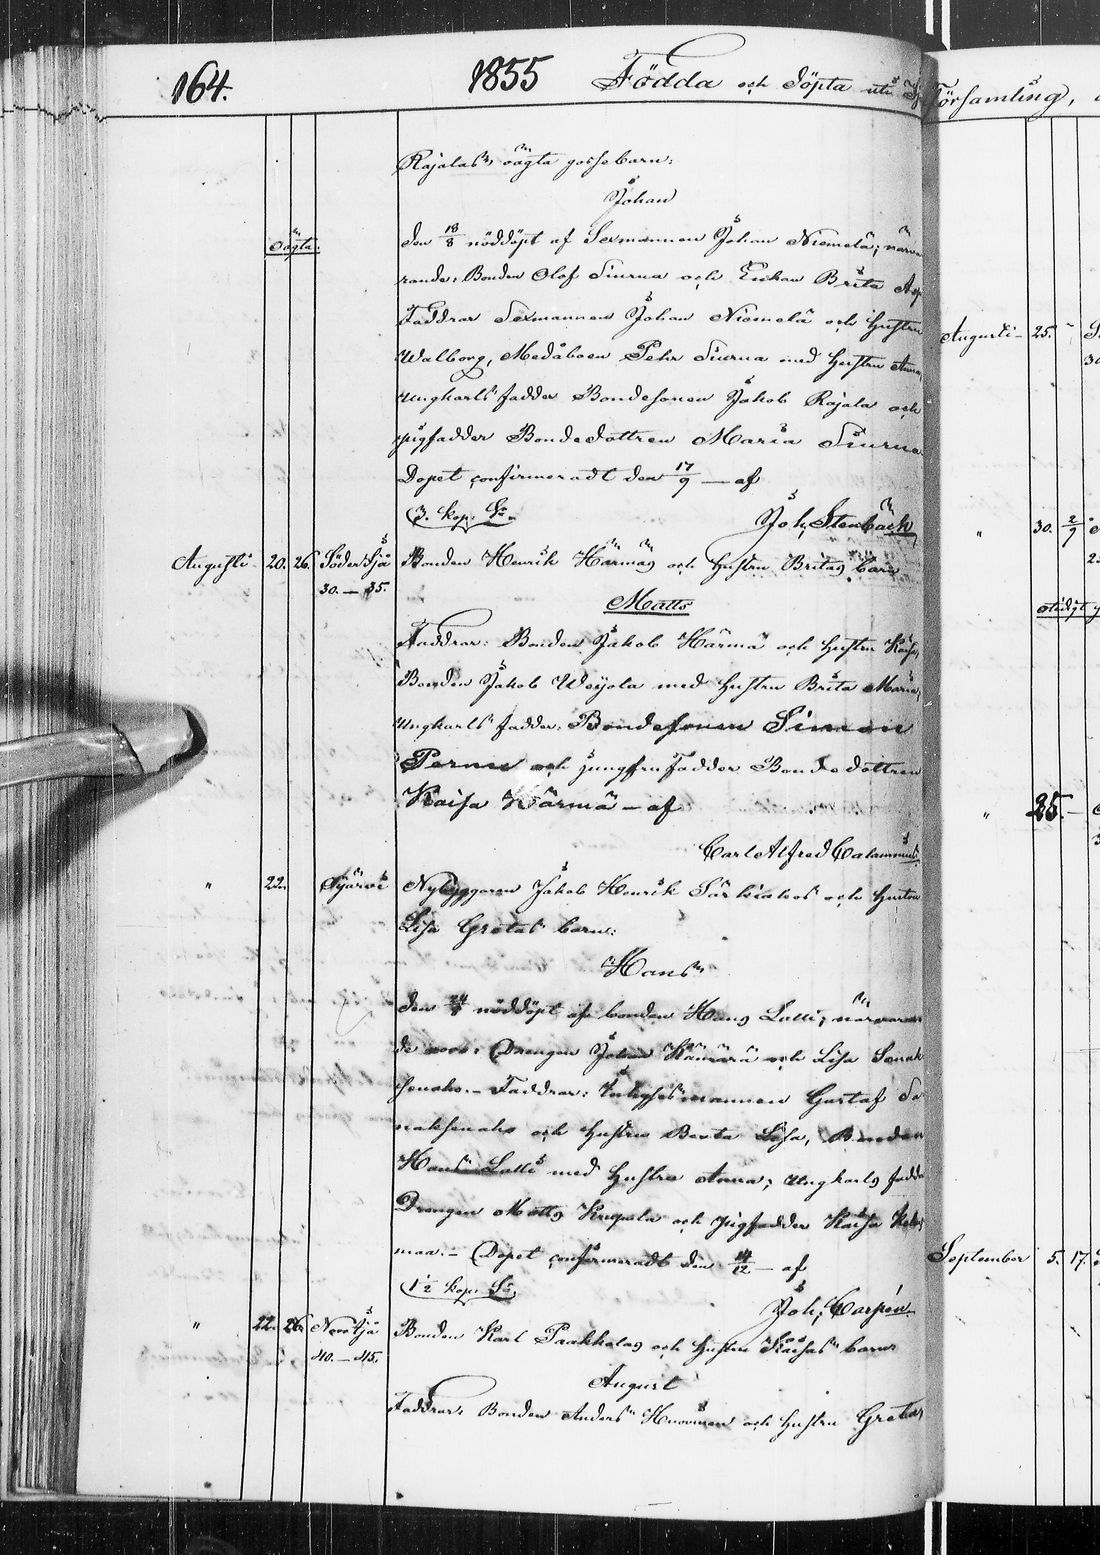 164.
1855 Födda och Döpta uti
Rajalas oägta gossebarn:
Johan
oägta.
den 18/8 nöddöpt af Sexmannen Johan Niemelä; närva
rande: Bonden Olof Siurua och Enkan Brita
Faddrar Sexmannen Johan Niemelä och hustru
Walborg, Medåboen Petr Siurua med hustru Anna,
Ungkarls fadder Bondesonen Jakob Rajala och
pigfadder Bondedottren Maria Siurua.
Dopet confirmeradt den 17/9 — af
(3. kop. Sr.
Joh. Stenbäck
Augusti 20. 26. Södersjä Bonden Henrik Härmäs och hustru Britas barn
30. — 35.
Matts
Faddrar: Bonden Jakob Härmä och hustru Kaisa,
Bonden Jakob Weijola med hustru Brita Maria,
Ungkarls fadder: Bondesonen Simon
Pernu och jungfrufadder Bondedottren
Kaisa Härmä — af
Carl Alfred Calamnius
" 22. Nybyggaren Jakob Henrik Särkiahos och hustru
Lisa Gretas barn:
Hans
den 24/8 nöddöpt af bonden Hans Lalli; närvaran
de voro: Drengen Johan och Lisa Sonak
senaho. — Faddrar: Inhysesmannen Gustaf So
naksenaho och hustru Beata Lisa, Bonden
Hans Lalli med hustru Anna; Ungkarls fadder
Drengen Matts Kurpala och pigfadder Kaisa
maa. — Dopet confirmeradt den 14/12 — af
(1 1/2 kop. Sr.
Joh. Carpén.
" 22. 26. Bonden Karl Paakkolas och hustru Kaisas barn
40. — 45.
August
Faddrar: Bonden Anders Huovinen och hustru Greta,
Församling,
Augusti 25.
" 30. 2/9
" 25.
September 5. 17.